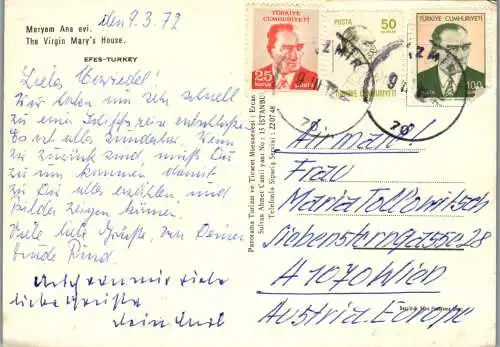 Meryem Ana evi.
The Virgin Mary's House.
EFES-TURKEY
den 9.3.72
Liebes
Wir haben uns sehr schnell
zu einer Schiffsreise entschlossen
Es ist alles wunderbar. Wenn
zu zurück sind, mußt Du
zu uns kommen damit
Du alles erzählen und
Bilder zeigen können.
Viele liebe Grüße von Deinem
Kind.
Auch von mir viele
liebe Grüße
Panorama Turizm ve Ticaret Müessesesi
Sultan Ahmet Camii yanı No: 15 İSTANBUL
Telefonla Sipariş Servisi: 22 07 48
TÜRKİYE
CUMHURİYETİ
25
POSTA
50
TÜRKİYE CUMHURİYETİ
TÜRKİYE CUMHURİYETİ
100
İZMİR
Air mail!
Frau
Maria
Siebensterngasse 28
A 1070 Wien
Austria-Europe